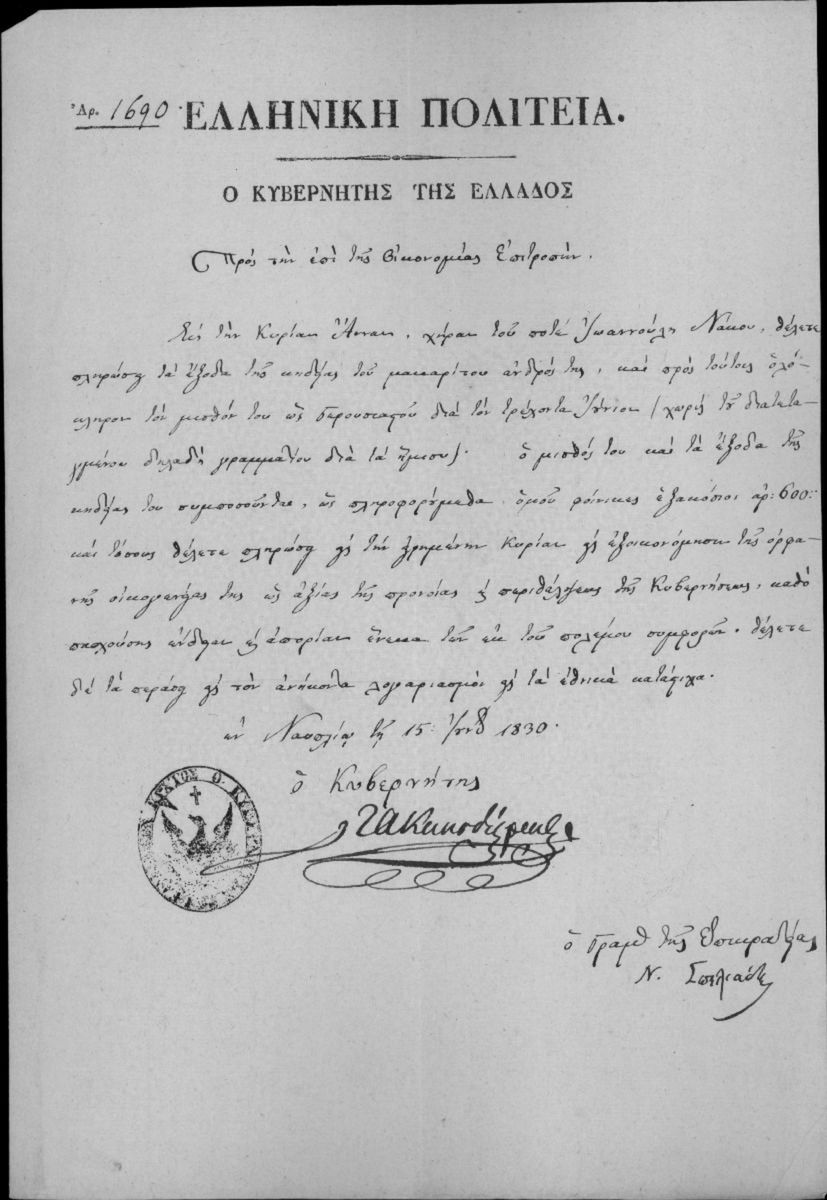 Ἀρ. 1690. ἙΛΛΗΝΙΚΗ ΠΟΛΙΤΕΙΑ.
Ο ΚΥΒΕΡΝΗΤΗΣ ΤΗΣ ΕΛΛΑΔΟΣ
Πρὸς τὴν ἐπὶ τῆς Οἰκονομίας Ἐπιτροπήν.
Εἰς τὴν Κυρίαν Ἄνναν, χήραν τοῦ ποτὲ Ἰωαννούλη Νάκου, θέλετε
πληρώσῃ τὰ ἔξοδα τῆς κηδείας τοῦ μακαρίτου ἀνδρός της, καὶ πρὸς τούτοις ὁλό-
κληρον τὸν μισθόν του ὡς Γερουσιαστοῦ διὰ τὸν τρέχοντα Ἰούνιον (χωρὶς τοῦ διατετα-
γμένου δηλαδὴ γραμματίου διὰ τὰ ἥμισυ). ὁ μισθός του καὶ τὰ ἔξοδα τῆς
κηδείας του συμποσοῦνται, ὡς πληροφορούμεθα ὁμοῦ φοίνικες ἑξακόσιοι ἀρ: 600:
καὶ τόσους θέλετε πληρώσῃ εἰς τὴν εἰρημένην Κυρίαν εἰς ἐξοικονόμησιν τῆς ὀρφα-
νῆς οἰκογενείας της ὡς ἀξίας τῆς προνοίας καὶ περιθάλψεως τῆς Κυβερνήσεως, καθὸ
πασχούσης ἔνδειαν καὶ ἀπορίαν ἕνεκα τῶν ἐκ τοῦ πολέμου συμφορῶν. θέλετε
δὲ τὰ περάσῃ εἰς τὸν ἀνήκοντα λογαριασμὸν εἰς τὰ ἐθνικὰ κατάστιχα.
ἐν Ναυπλίῳ τῇ 15: Ἰουνίου 1830.
ὁ Κυβερνήτης
Ἰ. Α. Καποδίστριας
ὁ Γραμ. τῆς Ἐπικρατείας
Ν. Σπηλιάδης